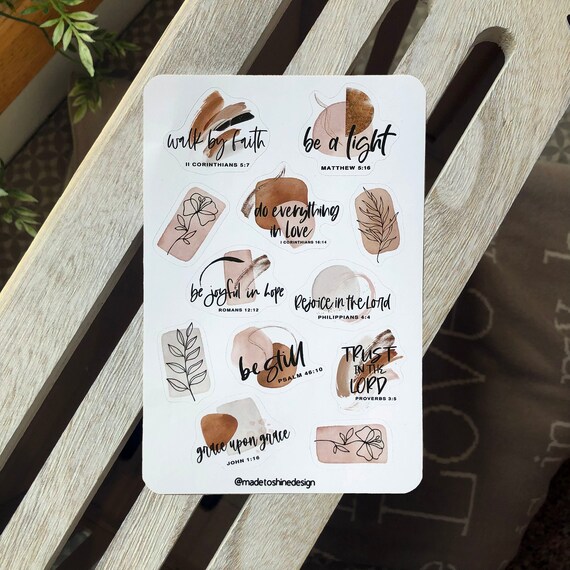 walk by faith
II CORINTHIANS 5:7
be a light
MATTHEW 5:16
do everything
in love
I CORINTHIANS 16:14
be joyful in hope
ROMANS 12:12
Rejoice in the Lord
PHILIPPIANS 4:4
be still
PSALM 46:10
TRUST
IN THE
LORD
PROVERBS 3:5
grace upon grace
JOHN 1:16
@madetoshinedesign
Love
in